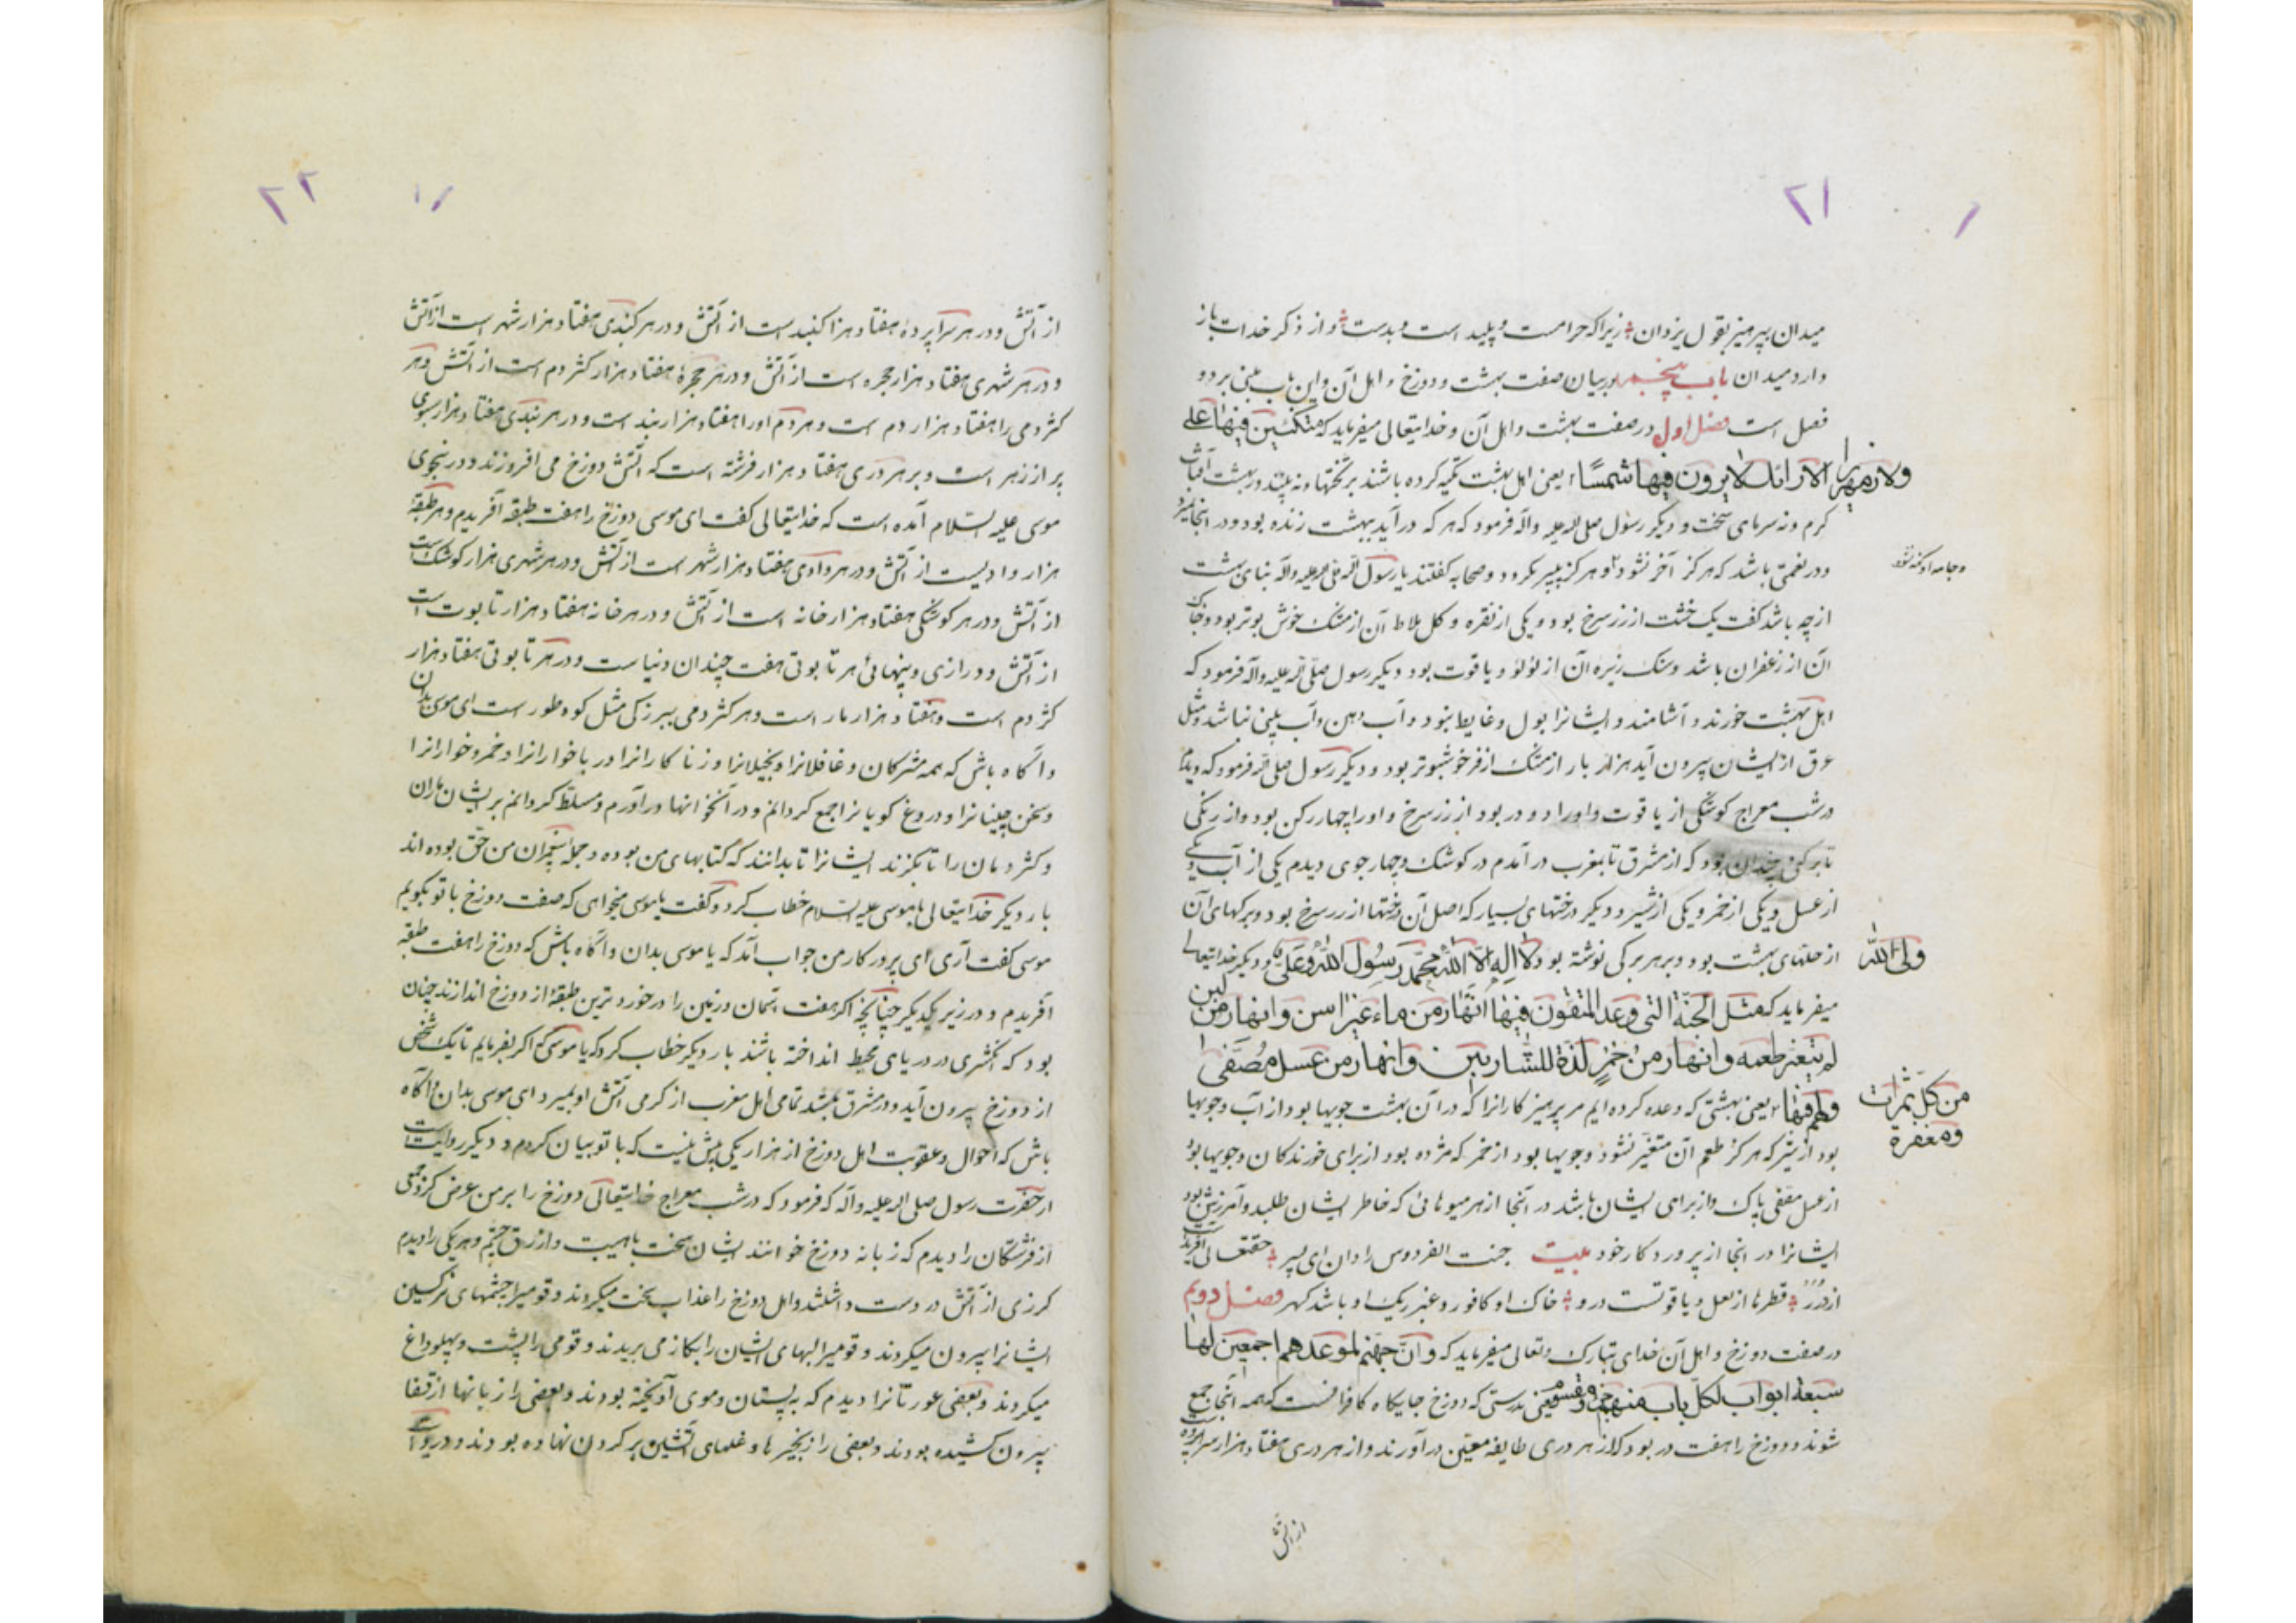 ۲۱
میدان بپرهیز بقول یزدان زیرا که حرامست و پلید است و بدست و از ذکر خدات باز
دارد میدان باب پنجم در بیان صفت بهشت و دوزخ و اهل آن و این باب مبنی بر دو
فصل است فصل اول در صفت بهشت و اهل آن و خدایتعالی میفرماید که متکئین فیها علی
الارائک لا یرون فیها شمسًا ولا زمهریرا یعنی اهل بهشت تکیه کرده باشند بر تختها و نه بینند در بهشت آفتاب
کرم و نه سرمای سخت و دیکر رسول صلی الله علیه واله فرمود که هر که در آید ببهشت زنده بود و در انجا نمیرد
و در نعمتی باشد که هرکز آخر نشود و هرکز پیر نکردد و صحابه کفتند یا رسول الله صلی الله علیه واله بنای بهشت
و جامه او کهنه نشود
از چه باشد کفت یک خشت از زر سرخ بود و یکی از نقره و کل بلاط آن از مشک خوش بوتر بود و خاک
آن از زعفران باشد و سنک ریزه آن از لؤلؤ و یاقوت بود دیکر رسول صلی الله علیه واله فرمود که
اهل بهشت خورند و آشامند و ایشانرا بول و غایط نبود و آب دهن و آب بینی نباشد و مثل
عرق از ایشان بیرون آید هزار بار از مشک ازفر خوشبوتر بود و دیکر رسول صلی الله فرمود که دیدم
در شب معراج کوشکی از یاقوت و او را دو در بود از زر سرخ و او را چهار رکن بود و از رکنی
تا برکنی چندان بود که از مشرق تا بمغرب در آمدم در کوشک و چهار جوی دیدم یکی از آب و یکی
از عسل و یکی از خمر و یکی از شیر و دیکر درختهای بسیار که اصل آن درختها از زر سرخ بود و برکهای آن
از حلهای بهشت بود و بر هر برکی نوشته بود لا اله الا الله محمد رسول الله و علی ولی الله و دیکر خدایتعالی
میفرماید که مثل الجنة التی وعد المتقون فیها انهار من ماء غیر اسن وانهار من لبن
لم یتغیر طعمه وانهار من خمر لذة للشاربین وانهار من عسل مصفی
ولهم فیها من کل ثمرات ومغفرة یعنی بهشتی که وعده کرده ایم مر پرهیزکارانرا که در آن بهشت جویها بود از آب و جویها
بود از شیر که هرکز طعم آن متغیر نشود و جویها بود از خمر که مزده بود از برای خورندکان و جویها بود
از عسل مصفی پاک و از برای ایشان باشد در آنجا از هر میوهائی که خاطر ایشان طلبد و آمرزش بود
ایشانرا در انجا از پروردکار خود بیت جنت الفردوس را دان ای پسر حقتعالی آفرید
از درر قطرها از لعل و یاقوتست درو خاک او کافور و عنبر ریک او باشد کهر فصل دویم
در صفت دوزخ و اهل آن خدای تبارک و تعالی میفرماید که وان جهنم لموعدهم اجمعین لها
سبعة ابواب لکل باب منهم جزء مقسوم یعنی بدرستی که دوزخ جایکاه کافرانست که همه آنجا جمع
شوند و دوزخ را هفت در بود که از هر دری طایفه معین در آورند و از هر دری هفتاد هزار سراپرده است
از آتش
۲۲
از آتش و در هر سراپردۀ هفتاد هزار کنبد است از آتش و در هر کنبدی هفتاد هزار شهر است از آتش
و در هر شهری هفتاد هزار حجره است از آتش و در هر حجرۀ هفتاد هزار کژدم است از آتش و هر
کژدمی را هفتاد هزار دم است و هر دم او را هفتاد هزار بند است و در هر بندی هفتاد هزار سبوی
پر از زهر است و بر هر دری هفتاد هزار فرشته است که آتش دوزخ می افروزند و در نجوی
موسی علیه السلام آمده است که خدایتعالی کفت ای موسی دوزخ را هفت طبقه آفریدم و هر طبقۀ
هزار وادیست از آتش و در هر وادی هفتاد هزار شهر است از آتش و در هر شهری هزار کوشک است
از آتش و در هر کوشکی هفتاد هزار خانه است از آتش و در هر خانه هفتاد هزار تابوت است
از آتش و درازی و پنهائی هر تابوتی هفت چندان دنیاست و در هر تابوتی هفتاد هزار
کژدم است و هفتاد هزار مار است و هر کژدمی ببزرکی مثل کوه طور است ای موسی بدان
و آکاه باش که همه مشرکان و غافلانرا و بخیلانرا و زناکارانرا و رباخوارانرا و خمرخوارانرا
و سخن چینانرا و دروغ کویانرا جمع کردانم و در آنخانها در آورم و مسلط کردانم بر ایشان ماران
و کژدمان را تا بکزند ایشانرا تا بدانند که کتابهای من بوده و جمله پیغمبران من حق بوده اند
بار دیکر خدایتعالی با موسی علیه السلام خطاب کرد و کفت یا موسی میخواهی که صفت دوزخ با تو بکویم
موسی کفت آری ای پروردکار من جواب آمد که یا موسی بدان و آکاه باش که دوزخ را هفت طبقه
آفریدم و در زیر یکدیکر چنانچه اکر هفت آسمان و زمین را در خوردترین طبقۀ از دوزخ اندازند چنان
بود که انکشتری در دریای محیط انداخته باشند بار دیکر خطاب کرد که یا موسی اکر بفرمایم تا یک شخص
از دوزخ بیرون آید و در مشرق باشد تمامی اهل مغرب از کرمی آتش او بمیرد ای موسی بدان و آکاه
باش که احوال و عقوبت اهل دوزخ از هزار یکی بیش نیست که با تو بیان کردم و دیکر روایت است
از حضرت رسول صلی الله علیه واله که فرمود که در شب معراج خدایتعالی دوزخ را بر من عرض کرد جمعی
از فرشتکان را دیدم که زبانه دوزخ خوانند ایشان سخت باهیبت و ازرق چشم و هر یکی را دیدم
کرزی از آتش در دست داشتند و اهل دوزخ را عذاب سخت میکردند و قومیرا چشمهای نرکسین
ایشانرا بیرون میکردند و قومیرا لبهای ایشان را بکاز می بریدند و قومی را پشت و پهلو داغ
میکردند و بعضی عورتانرا دیدم که به پستان و موی آویخته بودند و بعضی را زبانها از قفا
بیرون کشیده بودند و بعضی را زنجیرها و غلهای آتشین بر کردن نهاده بودند و در روایت